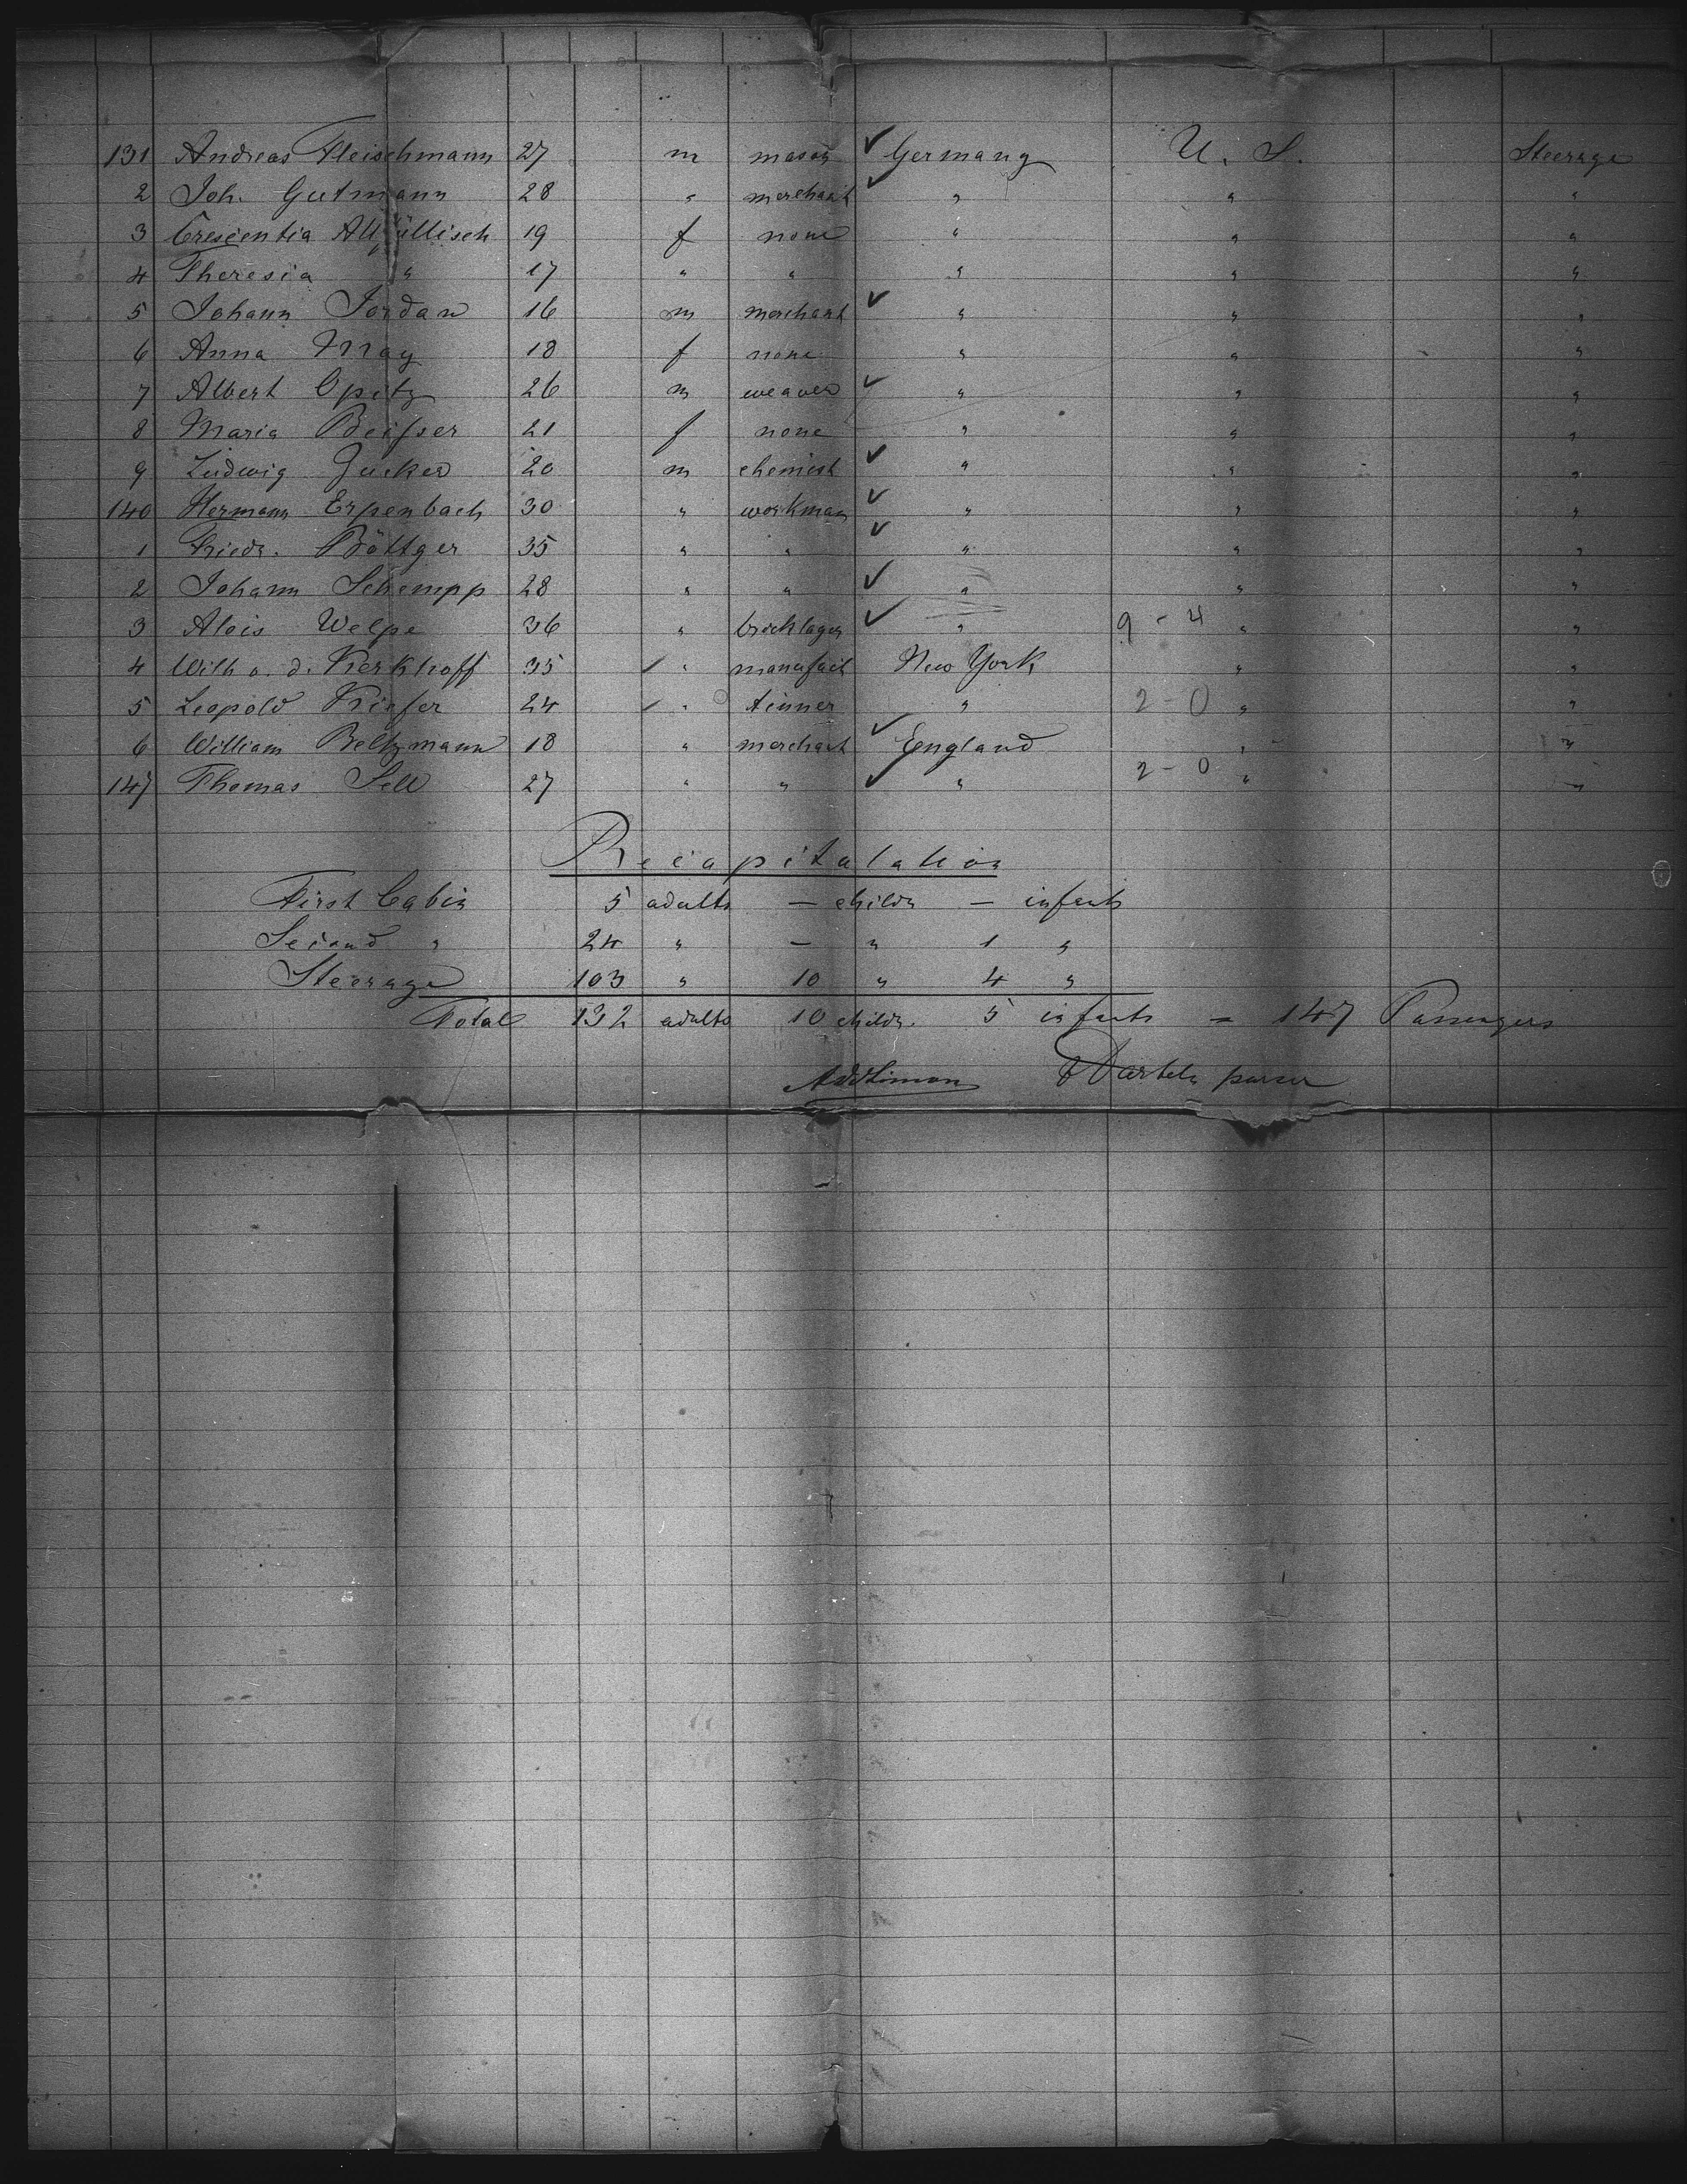 131 Andreas Fleischmann 27 m mason ✓ Germany U. S. Steerage
2 Joh. Gutmann 28 " merchant ✓ " " "
3 Crescentia 19 f none " " "
4 Theresia " 17 " " " " "
5 Johann Jordan 16 m merchant ✓ " " "
6 Anna May 18 f none " " "
7 Albert Opitz 26 m weaver ✓ " " "
8 Maria Beifser 21 f none " " "
9 Ludwig Zucker 20 m chemist ✓ " " "
140 Hermann Erpenbach 30 " workman ✓ " " "
1 Friedr. Böttger 35 " " ✓ " " "
2 Johann Schempp 28 " " ✓ " " "
3 Alois Welpe 36 " bricklayer ✓ " 9 - 4 " "
4 Wilh v. d. Kerkhoff 35 " manufact New York " "
5 Leopold Kiefer 24 " tinner " 2 - 0 " "
6 William Beltzmann 18 " merchant ✓ England " "
147 Thomas Sell 27 " " ✓ " 2 - 0 " "
Recapitulation
First Cabin 5 adults — childr — infants
Second " 24 " — " 1 "
Steerage 103 " 10 " 4 "
Total 132 adults 10 childr. 5 infants = 147 Passengers
purser